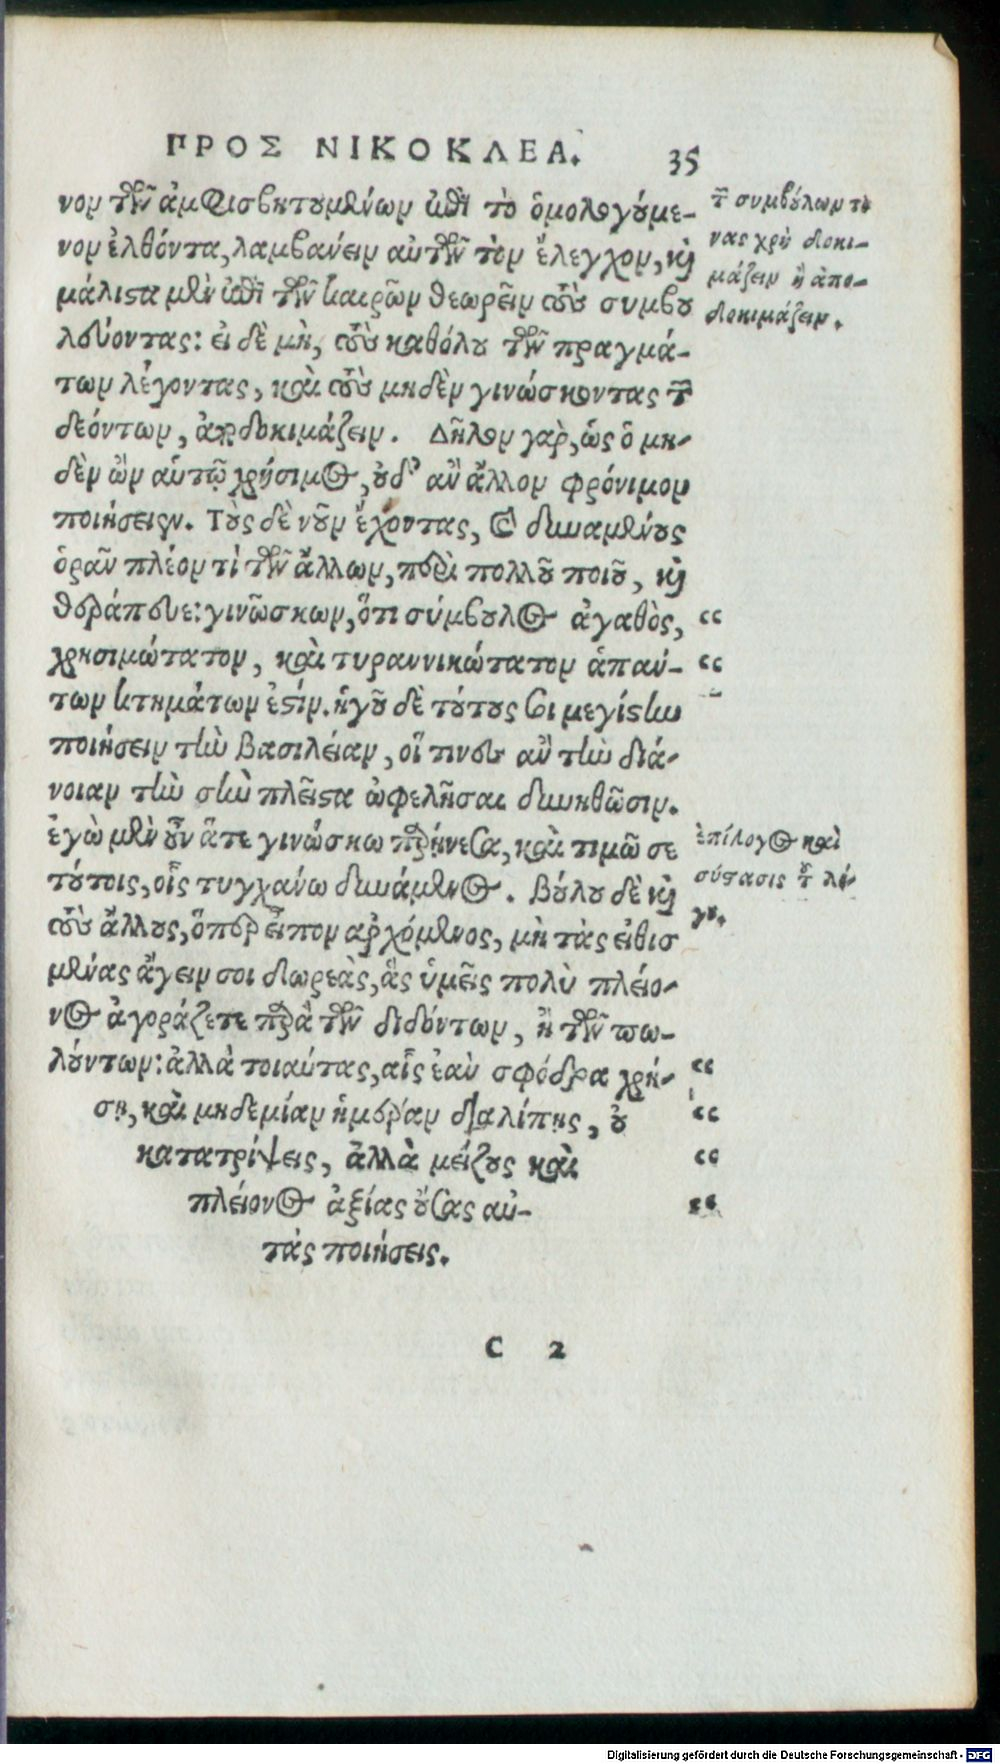 ΠΡΟΣ ΝΙΚΟΚΛΕΑ. 35
νον τῶν ἀμφισβητουμένων ἐπὶ τὸ ὁμολογούμε-
νον ἐλθόντα, λαμβάνειν αὐτῶν τὸν ἔλεγχον, καὶ
μάλιστα μὲν ἐπὶ τῶν καιρῶν θεωρεῖν τοὺς συμβου
λεύοντας: εἰ δὲ μὴ, τοὺς καθόλου τῶν πραγμά-
των λέγοντας, καὶ τοὺς μηδὲν γινώσκοντας τῶν
δεόντων, ἀποδοκιμάζειν. Δῆλον γὰρ, ὡς ὁ μη-
δὲν ὢν αὑτῷ χρήσιμος, οὐδ' ἂν ἄλλον φρόνιμον
ποιήσειεν. Τοὺς δὲ νοῦν ἔχοντας, καὶ δυναμένους
ὁρᾶν πλέον τὶ τῶν ἄλλων, περὶ πολλοῦ ποιοῦ, καὶ
θεράπευε: γινῶσκων, ὅτι σύμβουλος ἀγαθὸς, “
χρησιμώτατον, καὶ τυραννικώτατον ἁπάν- “
των κτημάτων ἐστίν. ἡγοῦ δὲ τούτους σοι μεγίστην
ποιήσειν τὴν βασιλείαν, οἵ τινες ἂν τὴν διά-
νοιαν τὴν σὴν πλεῖστα ὠφελῆσαι δυνηθῶσιν.
ἐγὼ μὲν οὖν ἅτε γινώσκω παρῄνεσα, καὶ τιμῶ σε
τούτοις, οἷς τυγχάνω δυνάμενος. βούλου δὲ καὶ
τοὺς ἄλλους, ὅπερ εἶπον ἀρχόμενος, μὴ τὰς εἰθισ
μένας ἄγειν σοι δωρεὰς, ἃς ὑμεῖς πολὺ πλείο-
νος ἀγοράζετε παρὰ τῶν διδόντων, ἢ τῶν πω-
λούντων: ἀλλὰ τοιαύτας, αἷς ἐὰν σφόδρα χρή- “
σῃ, καὶ μηδεμίαν ἡμέραν διαλίπῃς, οὐ “
κατατρίψεις, ἀλλὰ μείζους καὶ “
πλείονος ἀξίας οὔσας αὐ- “
τὰς ποιήσεις.
C 2
τῶν συμβούλων τί
νας χρὴ δοκι-
μάζειν ἢ ἀπο-
δοκιμάζειν.
ἐπίλογος καὶ
σύστασις τοῦ λό-
γου.
Digitalisierung gefördert durch die Deutsche Forschungsgemeinschaft - DFG